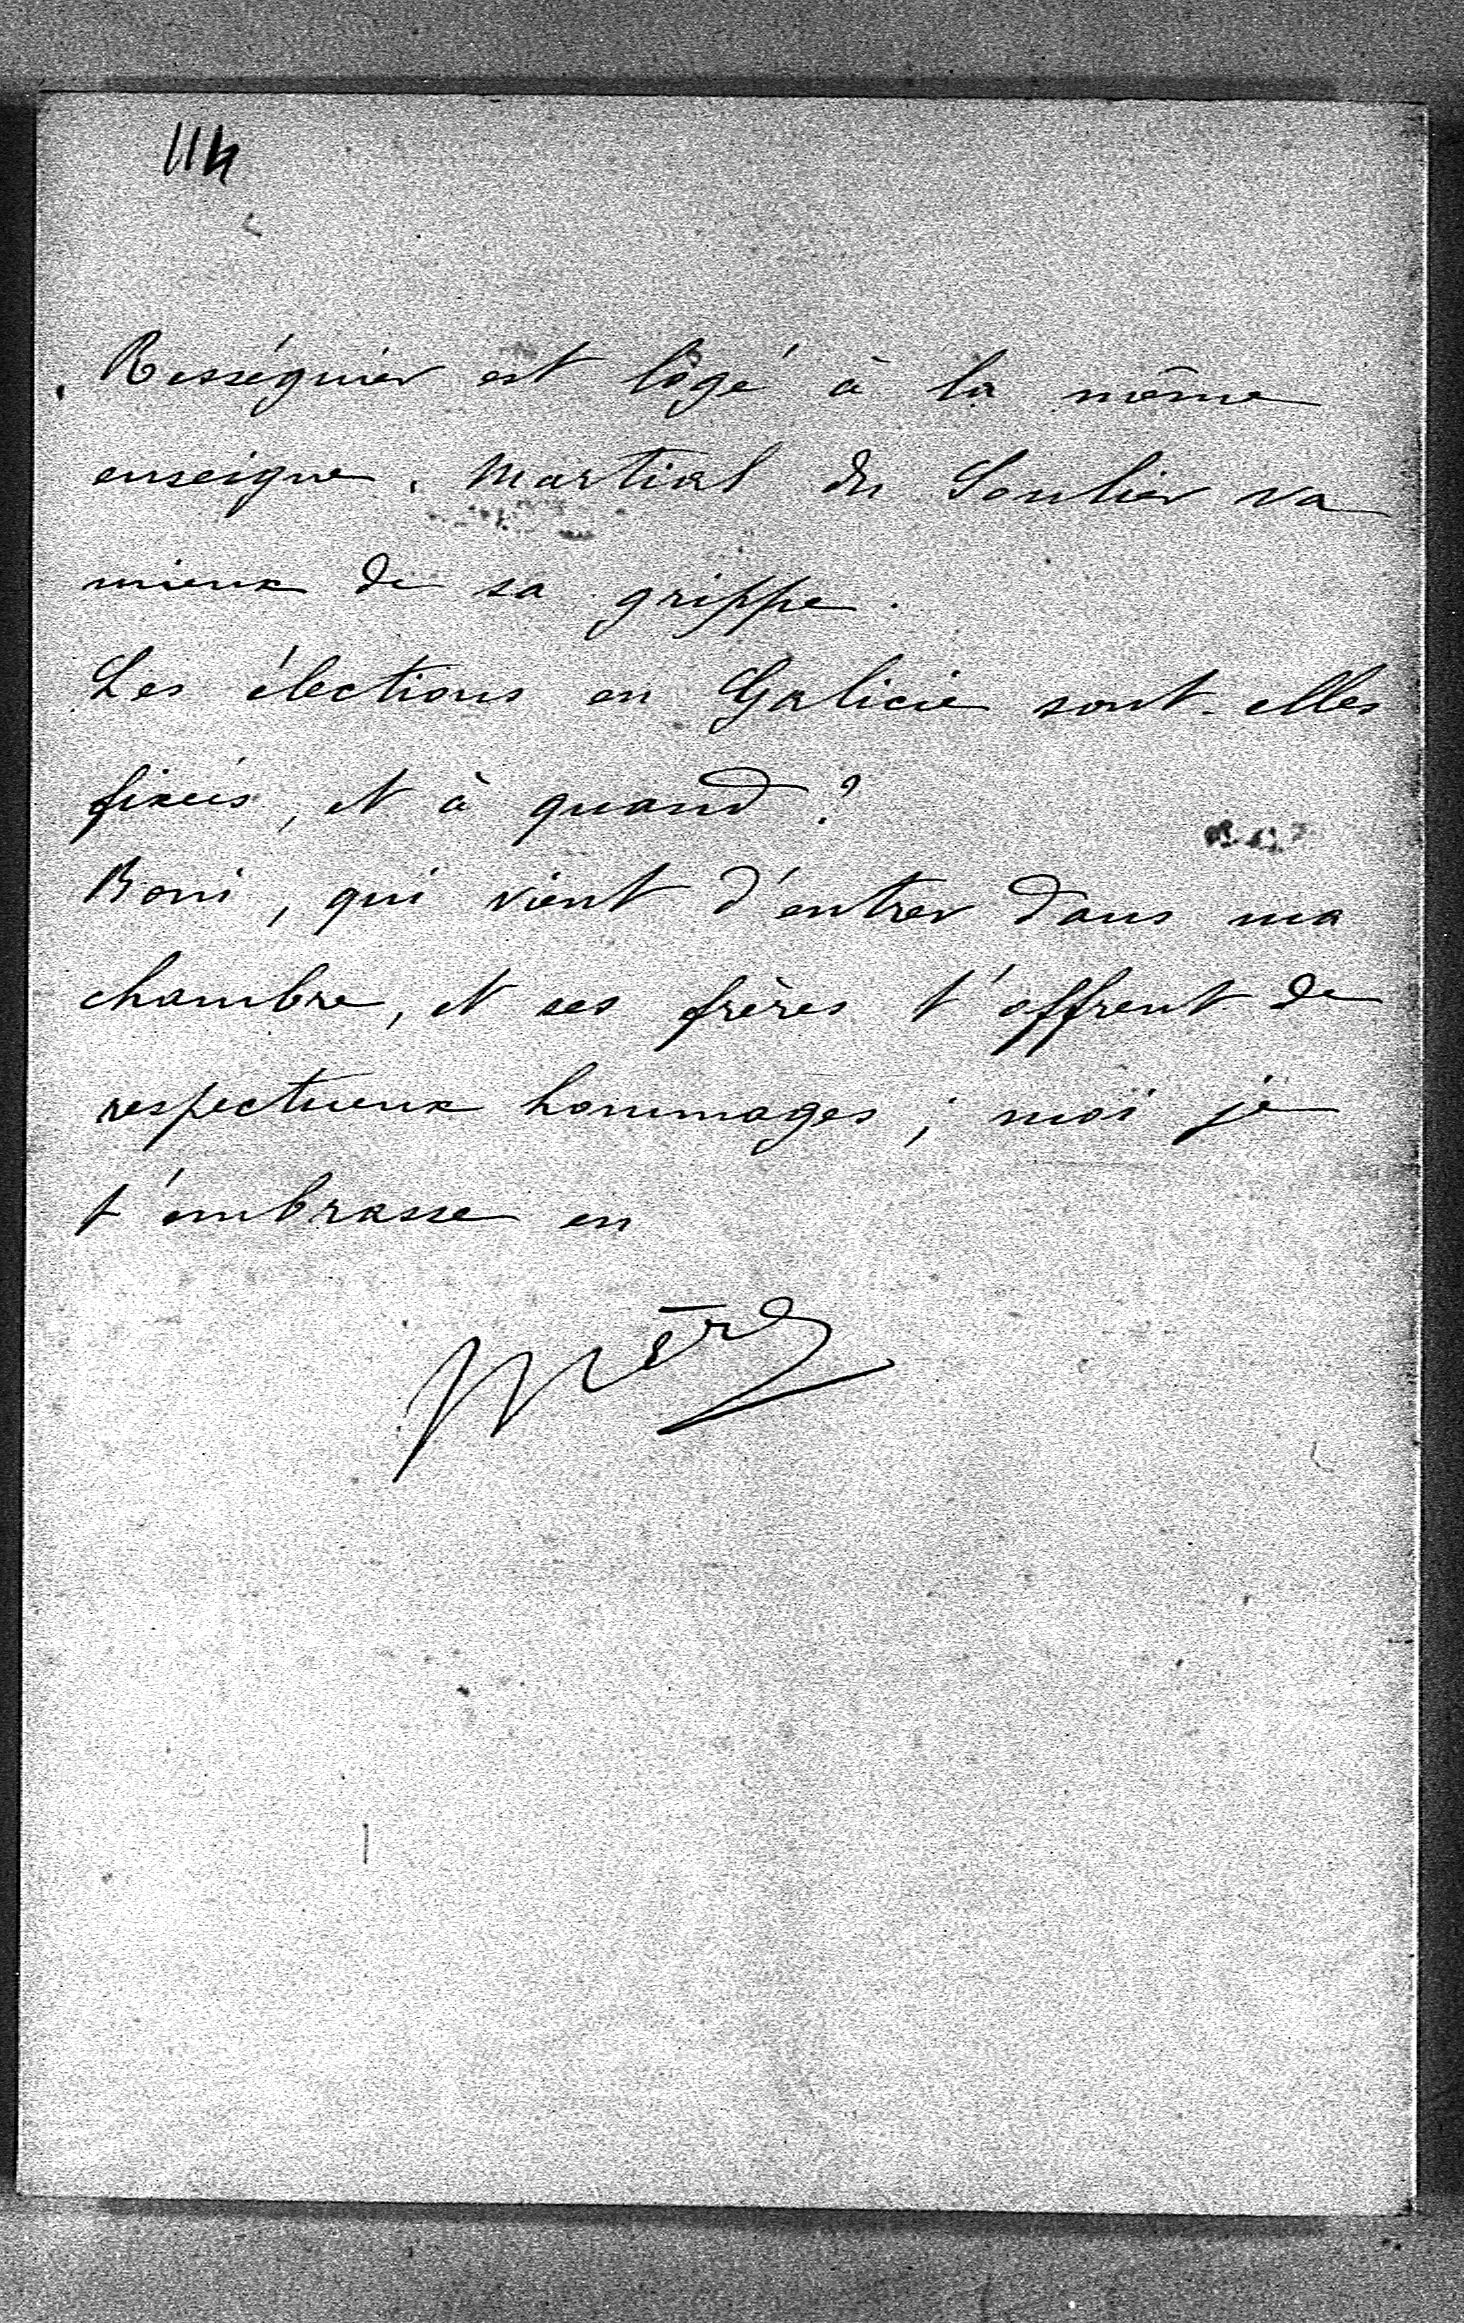 114
Rességuier est logé à la même
enseigne. Martial du Soulier va
mieux de sa grippe.
Les élections en Galicie sont-elles
fixées, et à quand ?
Boni, qui vient d'entrer dans ma
chambre, et ses frères t'offrent de
respectueux hommages ; moi je
t'embrasse en
Mère